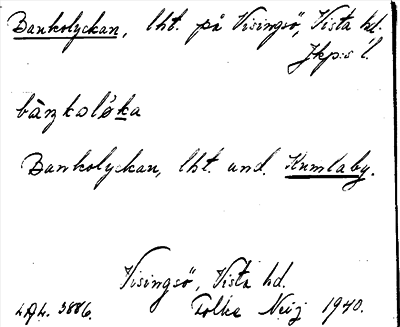 Bankolyckan, lht. på Visingsö, Vista hd.
Jkp:s l.
bàŋkolø̀ka
Bankolyckan, lht. und. Kumlaby.
Visingsö, Vista hd.
3886. Folke Neij 1940.